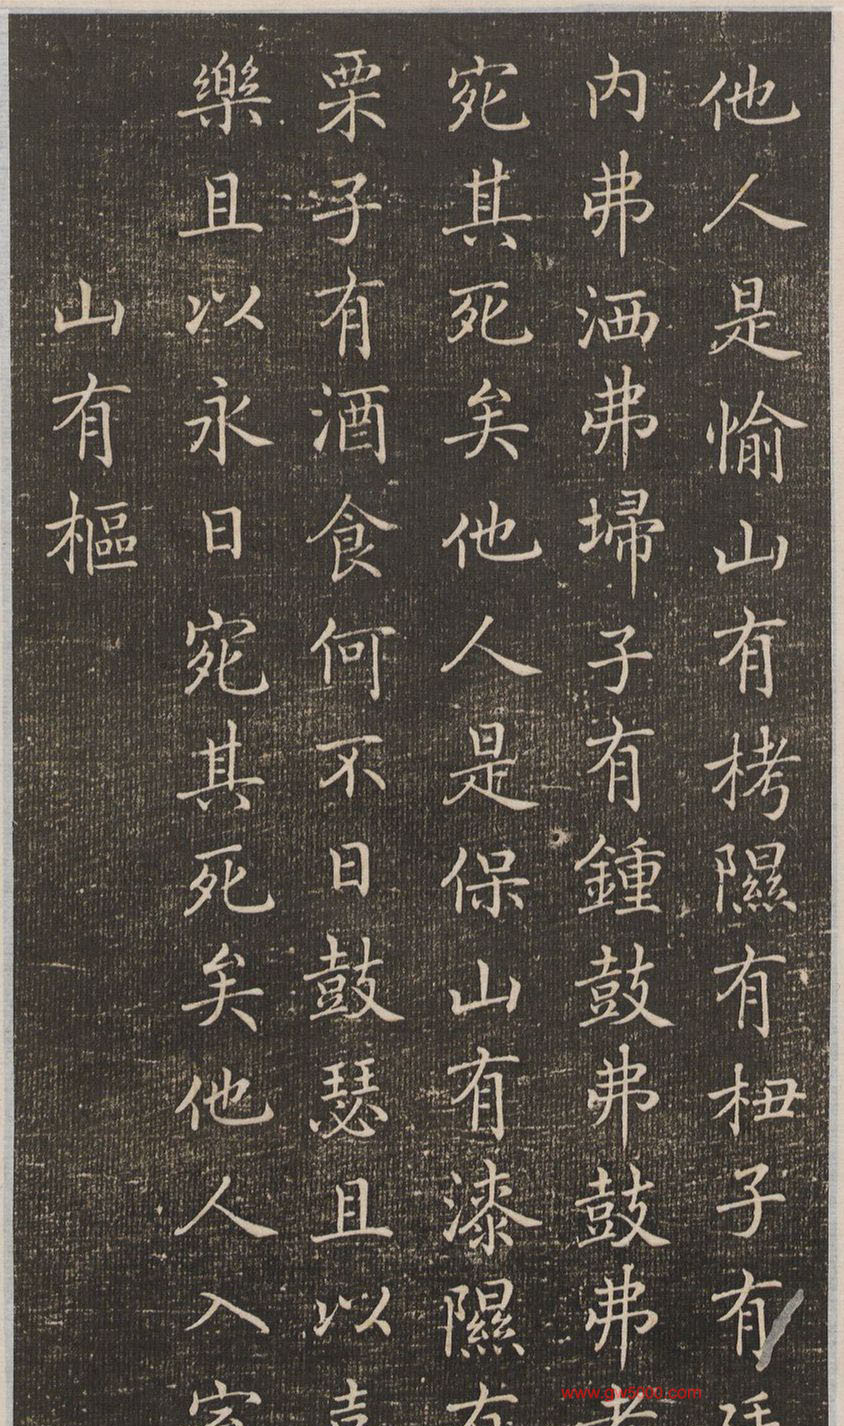 他人是愉山有栲隰有杻子有廷
内弗洒弗埽子有鍾鼓弗鼓弗考
宛其死矣他人是保山有漆隰有
栗子有酒食何不日鼓瑟且以喜
樂且以永日宛其死矣他人入室
山有樞
www.gw5000.com